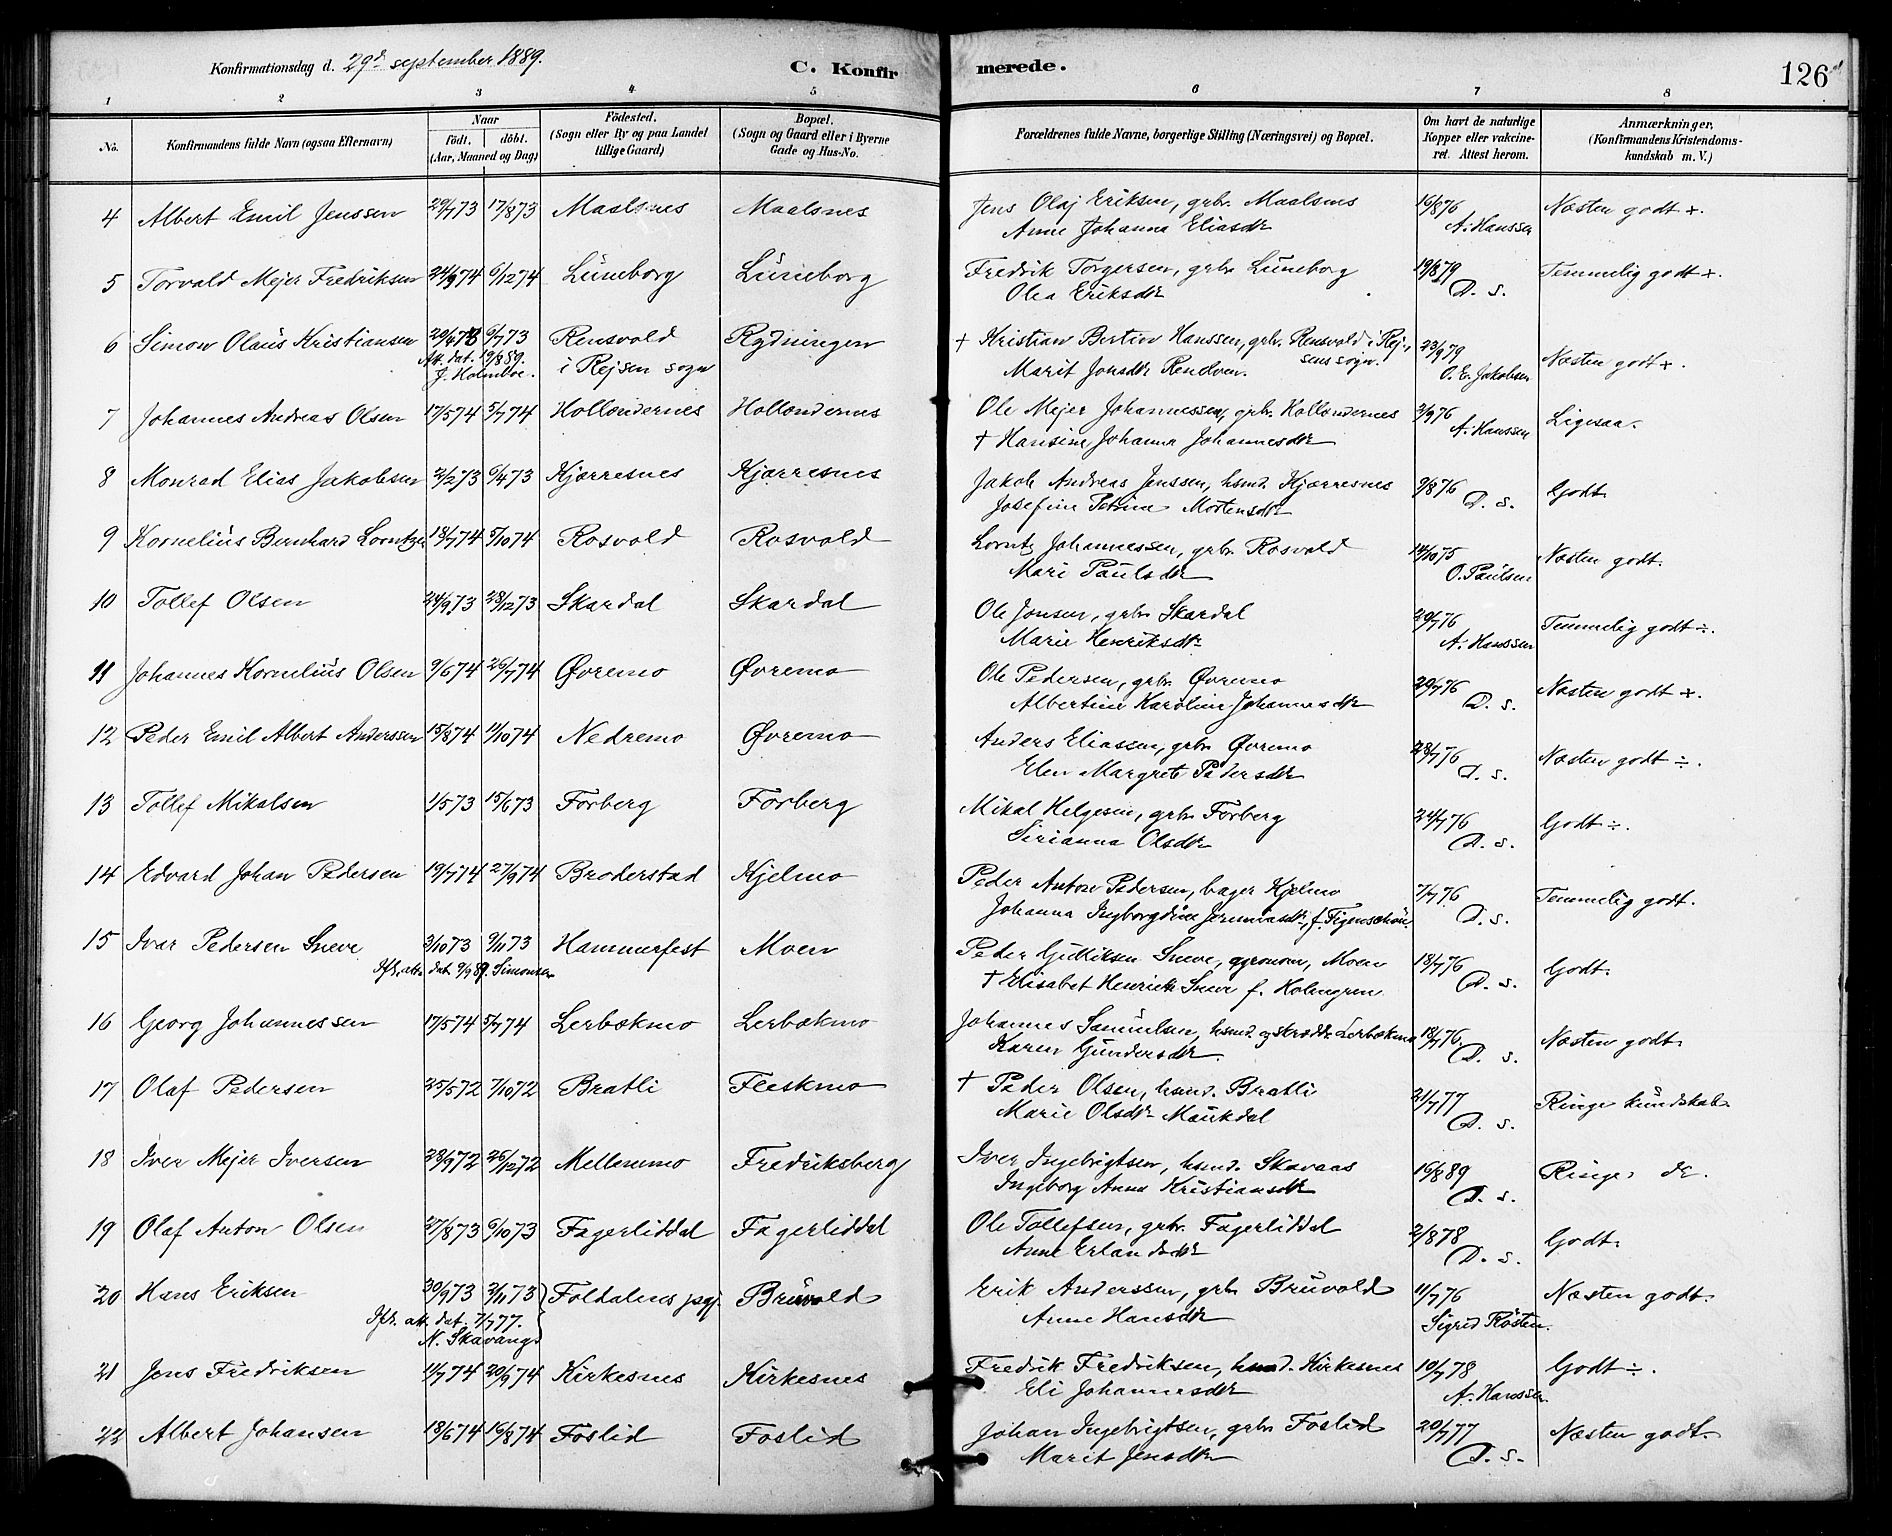 Konfirmationsdag d. 29de september 1889.
C. Konfirmerede.
126
1 2 3 4 5 6 7 8
No.
Konfirmandens fulde Navn (ogsaa Efternavn)
Naar
födt. döbt.
(Aar, Maaned og Dag)
Födested.
(Sogn eller By og paa Landet
tillige Gaard)
Bopæl.
(Sogn og Gaard eller i Byerne
Gade og Hus-No.
Forældrenes fulde Navne, borgerlige Stilling (Næringsvei) og Bopæl.
Om havt de naturlige
Kopper eller vakcine-
ret. Attest herom.
Anmærkninger,
(Konfirmandens Kristendoms-
kundskab m. V.)
4 Albert Emil Jenssen 29/7 73 17/8 73 Maalsnes Maalsnes Jens Olaj Eriksen, grbr. Maalsnes 16/8 76 Næsten godt +.
Anne Johanna Eliasdtr A. Hanssen
5 Torvald Mejer Fredriksen 24/9 74 6/12 74 Lüneborg Lüneborg Fredrik Torgersen, grbr Lüneborg 19/8 79 Temmelig godt +.
Olea Eriksdtr D. s.
6 Simon Olaüs Kristiansen 29/4 73 6/7 73 Rensvold Rydningen + Kristian Bertiov Hanssen, grbr. Rensvold i Rej- 23/9 79 Næsten godt +.
Att. dat. 19/8 89. i Rejsen sogn sens sogn.
J. Holmboe. Marit Jonsdtr Rendven. O. E. Jakobsen
7 Johannes Andreas Olsen 17/5 74 5/7 74 Hollendernes Hollendernes Ole Mejer Johannessen, grbr. Hollendernes 2/9 76 Ligesaa.
+ Hansine Johanna Johannesdtr A. Hanssen
8 Monrad Elias Jakobsen 2/2 73 6/4 73 Kjærresnes Kjærresnes Jakob Andreas Jenssen, hsmd. Kjærresnes 9/8 76 Godt.
Josefine Petrina Mortensdtr D. s.
9 Kornelius Bernhard Lorntzen 18/7 74 5/10 74 Rosvold Rosvold Lorntz Johannessen, grbr. Rosvold 14/10 75 Næsten godt.
Mari Paulsdtr O. Paulsen
10 Tollef Olsen 24/9 73 28/12 73 Skardal Skardal Ole Jonsen, grbr. Skardal 29/7 76 Temmelig godt ÷.
Marie Henriksdtr A. Hanssen
11 Johannes Kornelius Olsen 9/6 74 26/7 74 Øvremo Øvremo Ole Pedersen, grbr. Øvremo 29/7 76 Næsten godt +.
Albertine Karoline Johannesdtr D. s.
12 Peder Emil Albert Anderssen 15/8 74 11/10 74 Nedremo Øvremo Anders Eliassen, grbr. Øvremo 28/7 76 Næsten godt ÷.
Elen Margrete Pedersdtr D. s.
13 Tollef Mikalsen 1/5 73 15/6 73 Forberg Forberg Mikal Helgesen, grbr Forberg 24/7 76 Godt ÷.
Sirianna Olsdtr D. s.
14 Edvard Johan Pedersen 19/7 74 27/9 74 Broderstad Kjelmo Peder Anton Pedersen, bager Kjelmo 7/7 76 Temmelig godt.
Johanna Ingborgdine Jeremiasdtr, f. Figenschou. D. s.
15 Ivar Pedersen Sneve 3/10 73 9/11 73 Hammerfest Moen Peder Gulliksen Sneve, agronom, Moen 18/7 76 Godt.
Iflg. att. dat. 9/9 89. Simonsen + Elisabet Henriette Sneve f. Holmgren D. s.
16 Georg Johannessen 17/5 74 5/7 74 Lerbækmo Lerbækmo Johannes Samuelsen, hsmd. og skrædder Lerbækmo 18/7 76 Næsten godt.
Karen Gundersdtr D. s.
17 Olaf Pedersen 25/5 72 7/10 72 Bratli Fleskmo + Peder Olsen, hsmd. Bratli 21/7 77 Ringe kundskab.
Marie Olsdtr Maukdal D. s.
18 Iver Mejer Iversen 28/9 72 26/12 72 Mellemmo Fredriksberg Iver Ingebrigtsen, hsmd. Skavaas 16/8 89 Ringe do.
Ingeborg Anna Kristiansdtr D. s.
19 Olaf Anton Olsen 27/8 73 6/10 73 Fagerliddal Fagerliddal Ole Tollefsen, grbr. Fagerliddal 2/8 78 Godt.
Anne Erlandsdtr D. s.
20 Hans Eriksen 30/9 73 2/11 73 Foldalens pgj. Brüvold Erik Anderssen, grbr Brüvold 11/7 76 Næsten godt.
Iflg. att. dat. 7/7 77. Anne Hansdtr Sigrid Rösten.
N. Skavangs
21 Jens Fredriksen 11/7 74 20/9 74 Kirkesnes Kirkesnes Fredrik Fredriksen, hsmd. Kirkesnes 10/7 78 Godt ÷.
Eli Johannesdtr A. Hanssen
22 Albert Johansen 18/6 74 16/8 74 Foslid Foslid Johan Ingebrigtsen, grbr Foslid 20/7 77 Næsten godt.
Marit Jensdtr D. s.